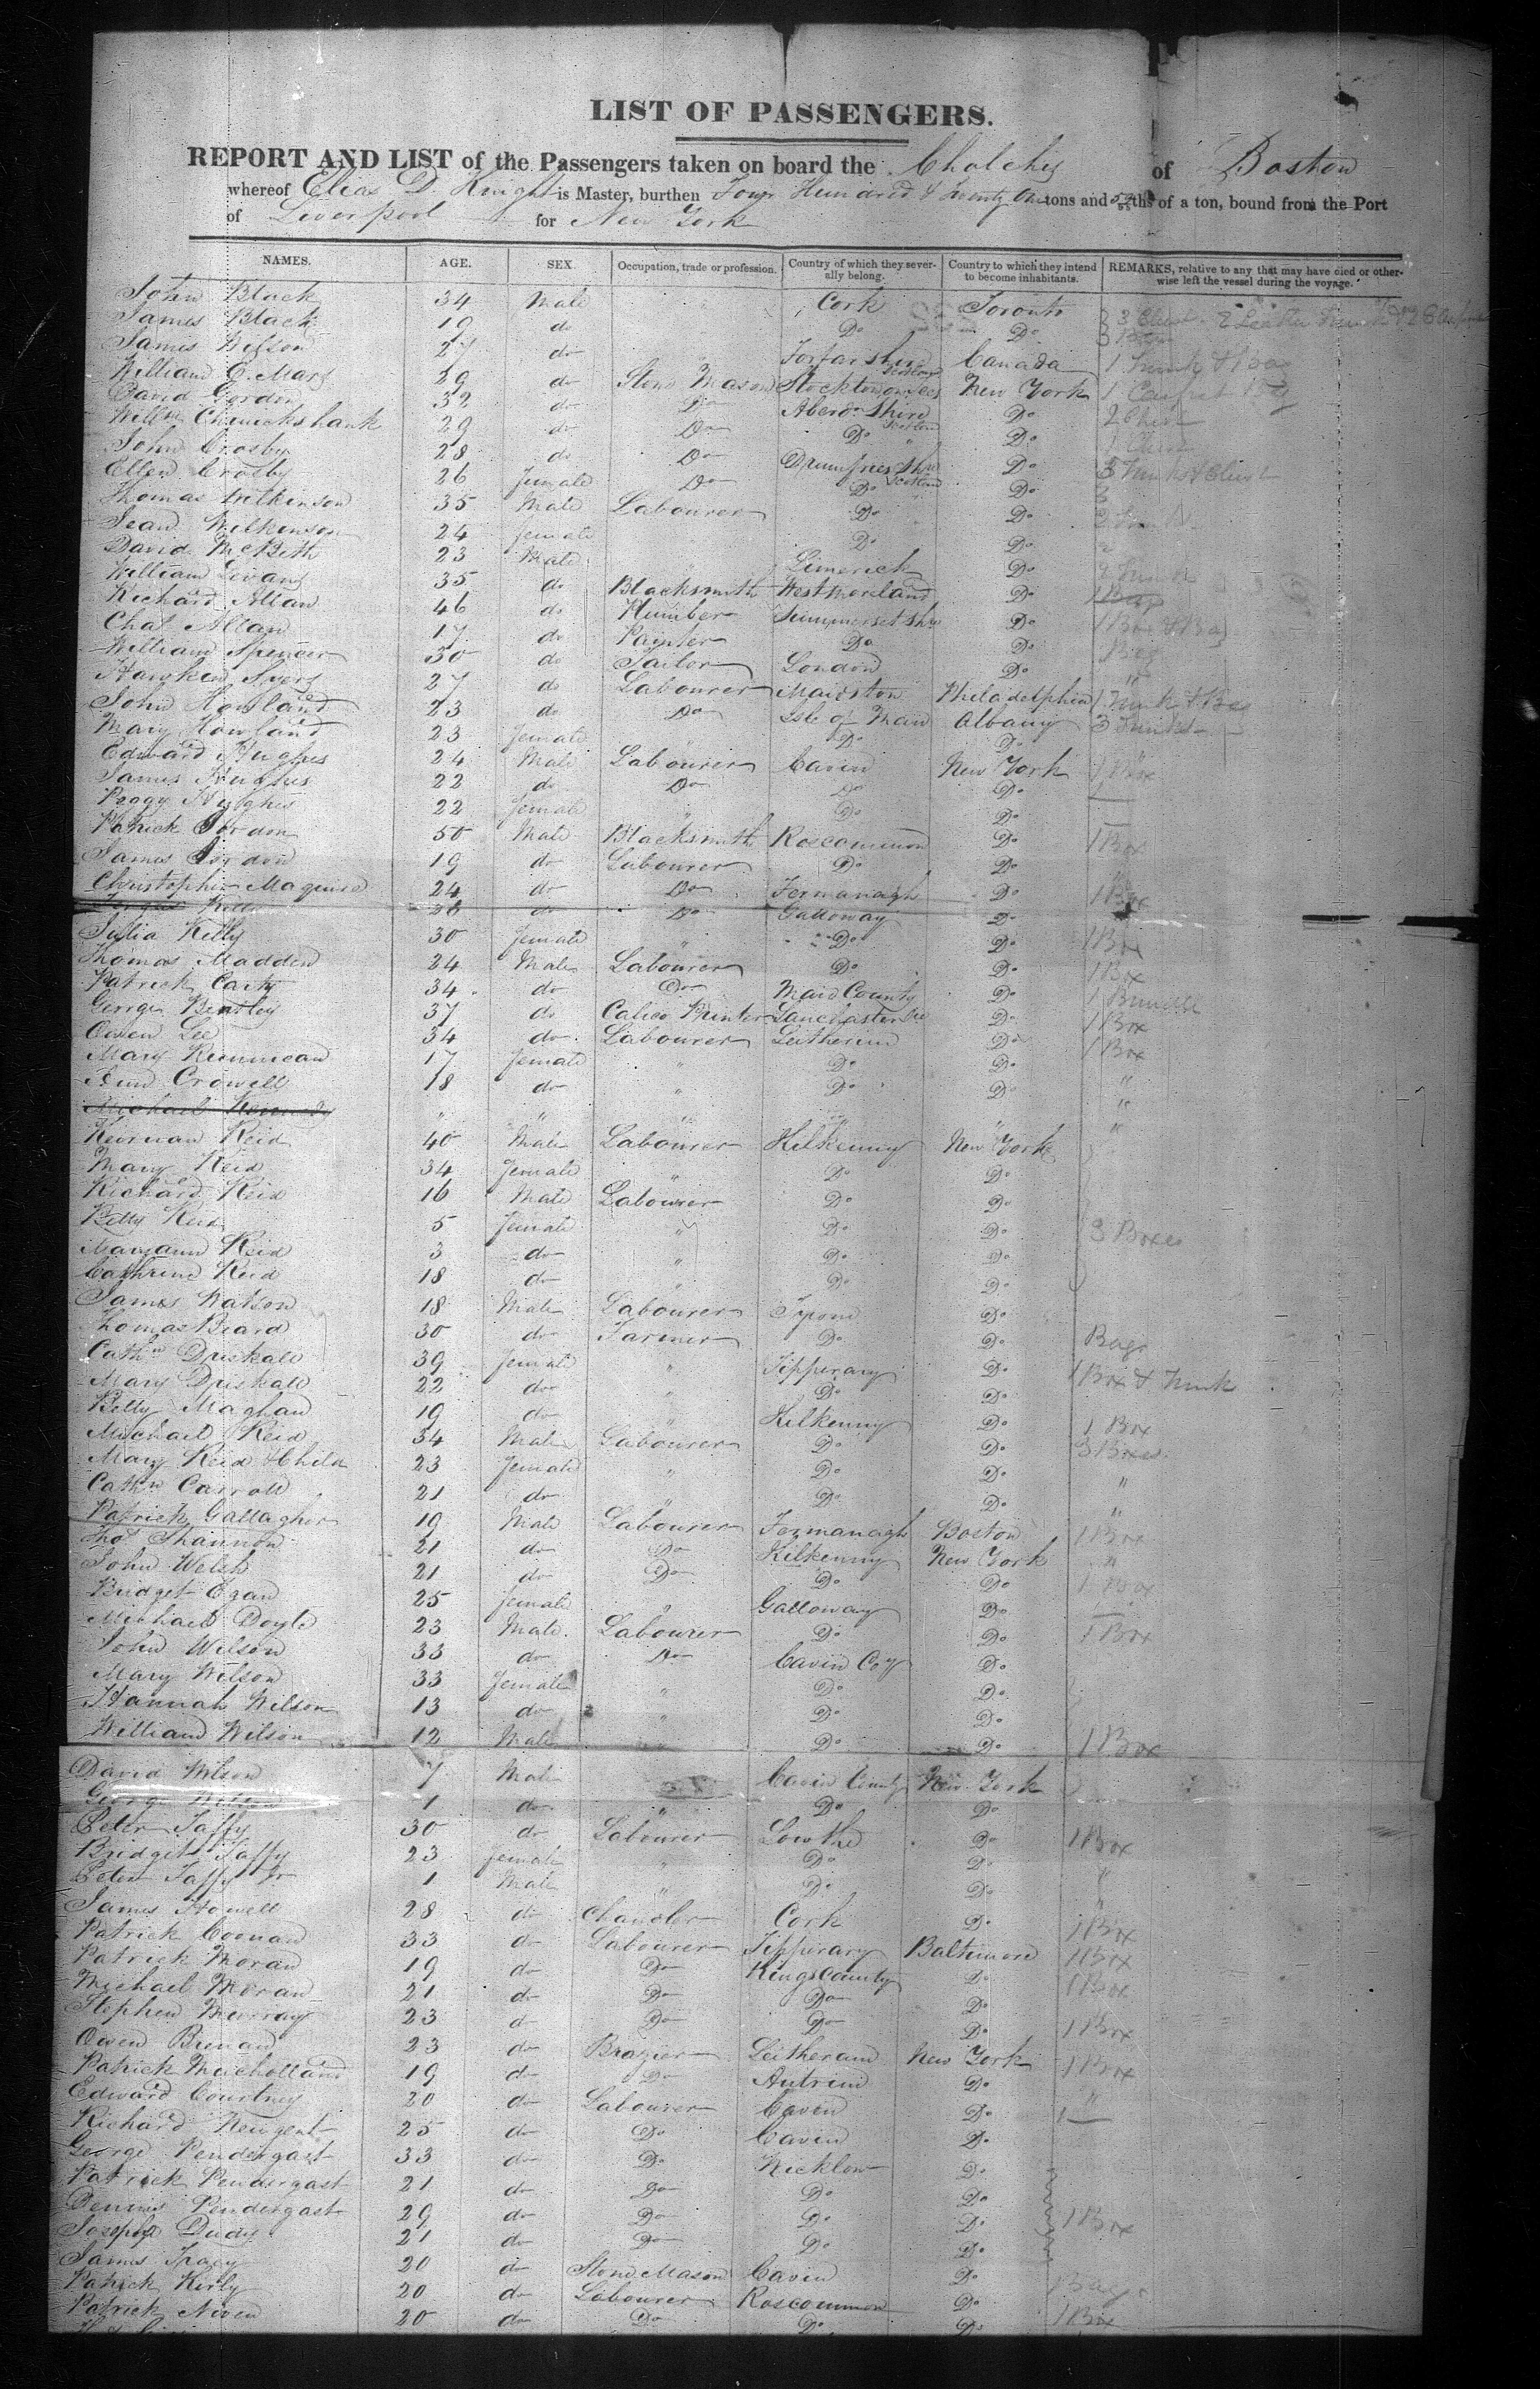 LIST OF PASSENGERS.
REPORT AND LIST of the Passengers taken on board the Cholchis of Boston
whereof Elias D. Knight is Master, burthen Four Hundred & Twenty One tons and ths of a ton, bound from the Port
of Liverpool for New York
NAMES. AGE. SEX Occupation, trade or profession. Country of which they severally belong. Country to which they intend to become inhabitants. REMARKS, relative to any that may have died or otherwise left the vessel during the voyage.
John Black 34 Male Cork Toronto
James Black 19 do Do Do
James 27 do Forfarshire Scotland Canada 1 Trunk & Bag
William C. 29 do Stone Mason Stockton on Tees New York 1 Carpet Bag
David Gordon 32 do Do Aberdn Shire Scotland Do 2 Chest
Willm 29 do Do Do Do 1 Chest
John Crosby 28 do Do Dumfries Shire Scotland Do 3 Trunks & Chest
Ellen Crosby 26 female Do Do Do
Thomas Wilkinson 35 Male Labourer Do Do
Jean Wilkinson 24 female Do Do
David McBeth 23 Male Limerick Do
William 35 do Blacksmith Westmoreland Do 1 Bag
Richard Allan 46 do Plumber Summerset Shire Do 1 Box & Bag
Chas Allan 17 do Painter Do Do Bag
William Spencer 30 do Tailor London Do "
27 do Labourer Maidston Philadelphia 1 Trunk & Bag
John Howland 23 do Do Isle of Man Albany 3 Trunks
Mary Howland 23 female Do Do
Edward Hughes 24 Male Labourer Cavin New York 1 Box
James Hughes 22 do Do Do Do
Peggy Hughes 22 female " Do Do
Patrick Gordon 50 Male Blacksmith Roscommon Do 1 Box
James Gordon 19 do Labourer Do Do
Christopher Maguire 24 do Do Fermanagh Do 1 Box
26 do Do Galloway Do
Julia Kelly 30 female " Do Do 1 Box
Thomas Madden 24 Male Labourer Do Do 1 Box
Patrick Carty 34 do Do Maid County Do 1 Bundle
George Bentley 37 do Calico Printer Do 1 Box
Owen Lee 34 do Labourer Leitherim Do 1 Box
Mary 17 female " Do Do "
Ann Crowell 18 do " Do Do "
Michael Kennedy " " " " " "
Reid 40 Male Labourer Kilkenny New York
Mary Reid 34 female " Do Do
Richard Reid 16 Male Labourer Do Do
Betty Reid 5 female " Do Do 3 Boxes
Maryann Reid 3 do " Do Do
Cathrine Reid 18 do " Do Do
James Watson 18 Male Labourer Tyrone Do
Thomas Beard 30 do Farmer Do Do Bags
Cathn Driskall 39 female " Tipperary Do 1 Box & Trunk
Mary Driskall 22 do " Do Do
Betty Maghan 19 do " Kilkenny Do 1 Box
Michael Reid 34 Male Labourer Do Do 3 Boxes
Mary Reid & Child 23 female " Do Do "
Cathn Carroll 21 do " Do Do "
Patrick Gallagher 19 Male Labourer Fermanagh Boston 1 Box
Thos Shannon 21 do Do Kilkenny New York "
John Welsh 21 do Do Do Do 1 Box
Bridget Egan 25 female " Galloway Do
Michael Doyle 23 Male Labourer Do Do 1 Box
John Wilson 33 do Do Cavin Coy Do
Mary Wilson 33 female " Do Do
Hannah Wilson 13 do " Do Do
William Wilson 12 Male " Do Do 1 Box
David Wilson 7 Male Cavin County New York
George Wilson 1 do Do Do
Peter Taffy 30 do Labourer Lowthe Do 1 Box
Bridget Taffy 23 female " Do Do "
Peter Taffy Jr 1 Male " Do Do "
James Howell 28 do Chandler Cork Do 1 Box
Patrick Coonan 33 do Labourer Tipperary Baltimore 1 Box
Patrick Moran 19 do Do Kings County Do 1 Box
Michael Moran 21 do Do Do Do
Stephen Murray 23 do Do Do Do 1 Box
Owen Brenan 23 do Brazier Leitheram New York 1 Box
Patrick Macholland 19 do Do Antrim Do "
Edward Courtney 20 do Labourer Cavin Do
Richard Neugent 25 do Do Cavin Do
George Pendergast 33 do Do Wicklow Do
Patrick Pendergast 21 do Do Do Do
Dennis Pendergast 29 do Do Do Do 1 Box
Joseph Dudy 21 do Do Do Do
James Tracy 20 do Stone Mason Cavin Do
Patrick Kirly 20 do Labourer Roscommon Do Bags
Patrick Niven 20 do Do Do Do 1 Box